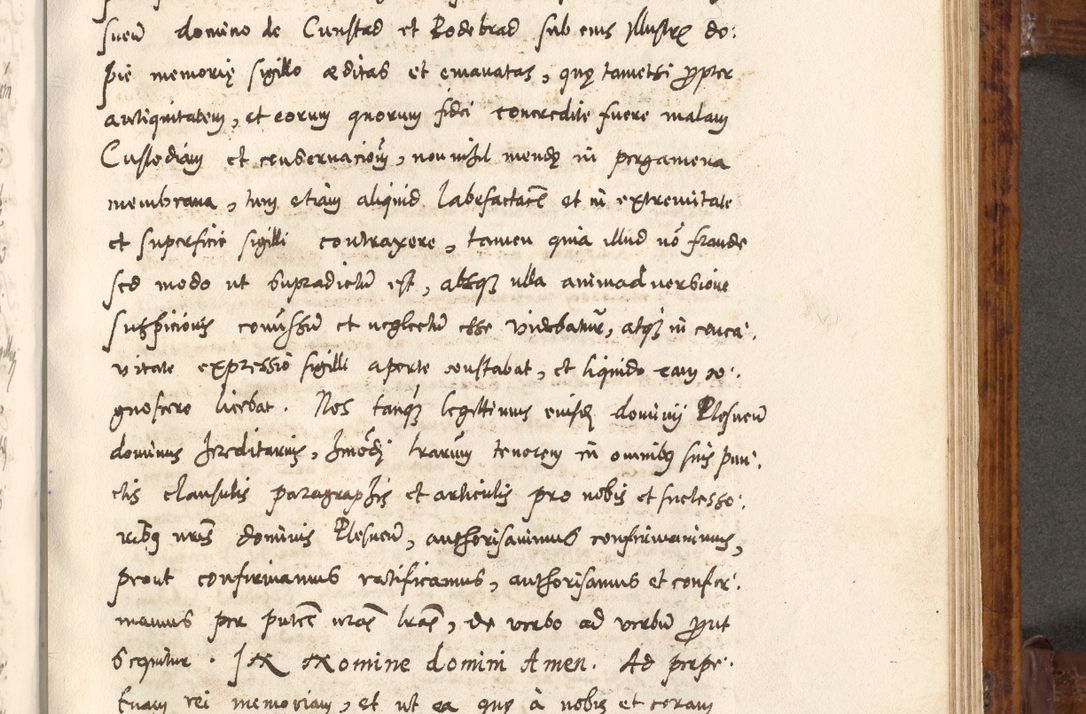 sneñ domino de Cunstad et Podebrad sub eius Illustr do:
pie memorię sigillo æditas et emanatas, quę tametsi ꝓpter
antiquitatem, et eorum quorum fidei concredite fuere malam
Custodiam et conservacionẽ, non nihil mendę in pergamena
membrana, tum etiam aliquid labefactacõis et in extremitate
et superficie sigilli contraxere, tamen quia illud nõ fraude
sed modo ut supradictũ est, absqꝫ ulla animadversione
suspicionis conussũ et neglectũ esse videbatur, atqꝫ in conca:
vitate expressio sigilli aperte constabat, et liquido eam co:
gnoscere licebat. Nos tanqꝫ legittimus eiusdẽ dominij Plesneñ
dominus hereditarius, hmõdj lrarum tenorem in omnibꝫ suis pun:
ctis clausulis paragraphis et articulis pro nobis et successo:
ribꝫ nrĩs dominis Plesneñ, authorisavimus confirmavimus,
prout confirmamus ratificamus, authorisamus et confir:
mamus per pntẽs nrãs lrãs, de verbo ad verbũ ꝓut
sequitur. In Nomine domini Amen. Ad perpe:
tuam rei memoriam, et ut ea quę à nobis et coram